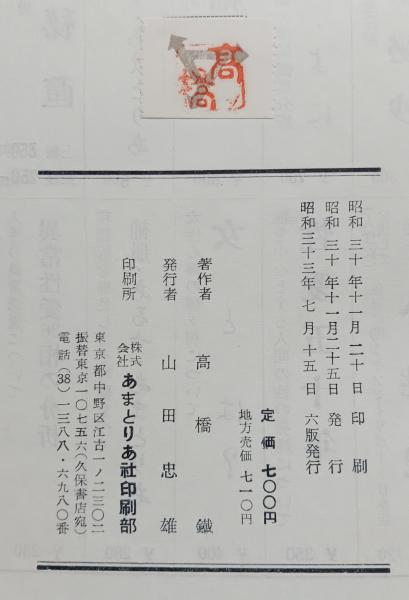 昭和三十年十一月二十日印刷
昭和三十年十一月二十五日発行
昭和三十三年七月十五日六版発行
定価七〇〇円
地方売価七一〇円
著作者高橋鐵
発行者山田忠雄
印刷所株式会社あまとりあ社印刷部
東京都中野区江古一ノ二三〇二
振替東京一〇七五六(久保書店宛)
電話(38)一三八八・六九八〇番